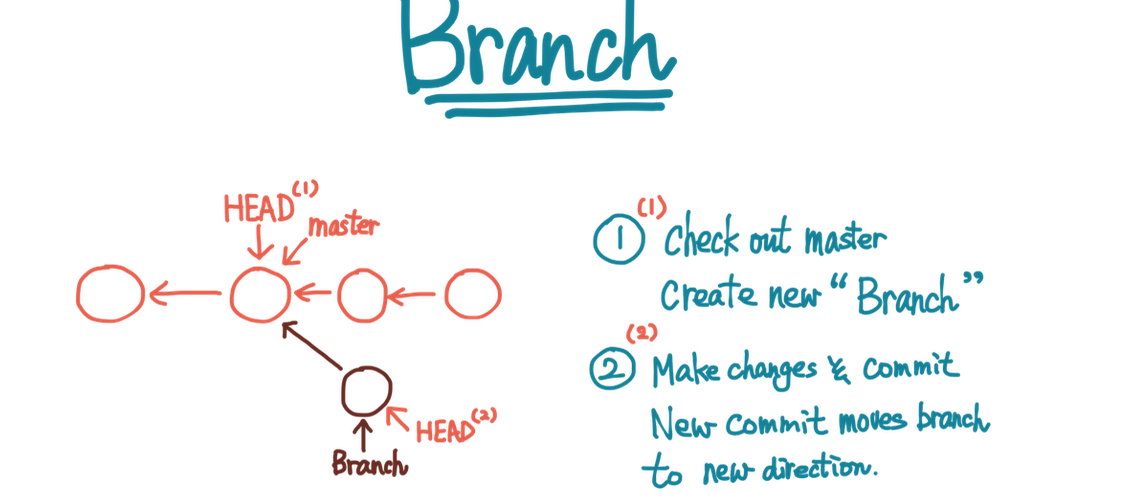 Branch
HEAD(1)
master
HEAD(2)
Branch
(1)
1 Check out master
Create new “Branch”
(2)
2 Make changes & commit
New commit moves branch
to new direction.